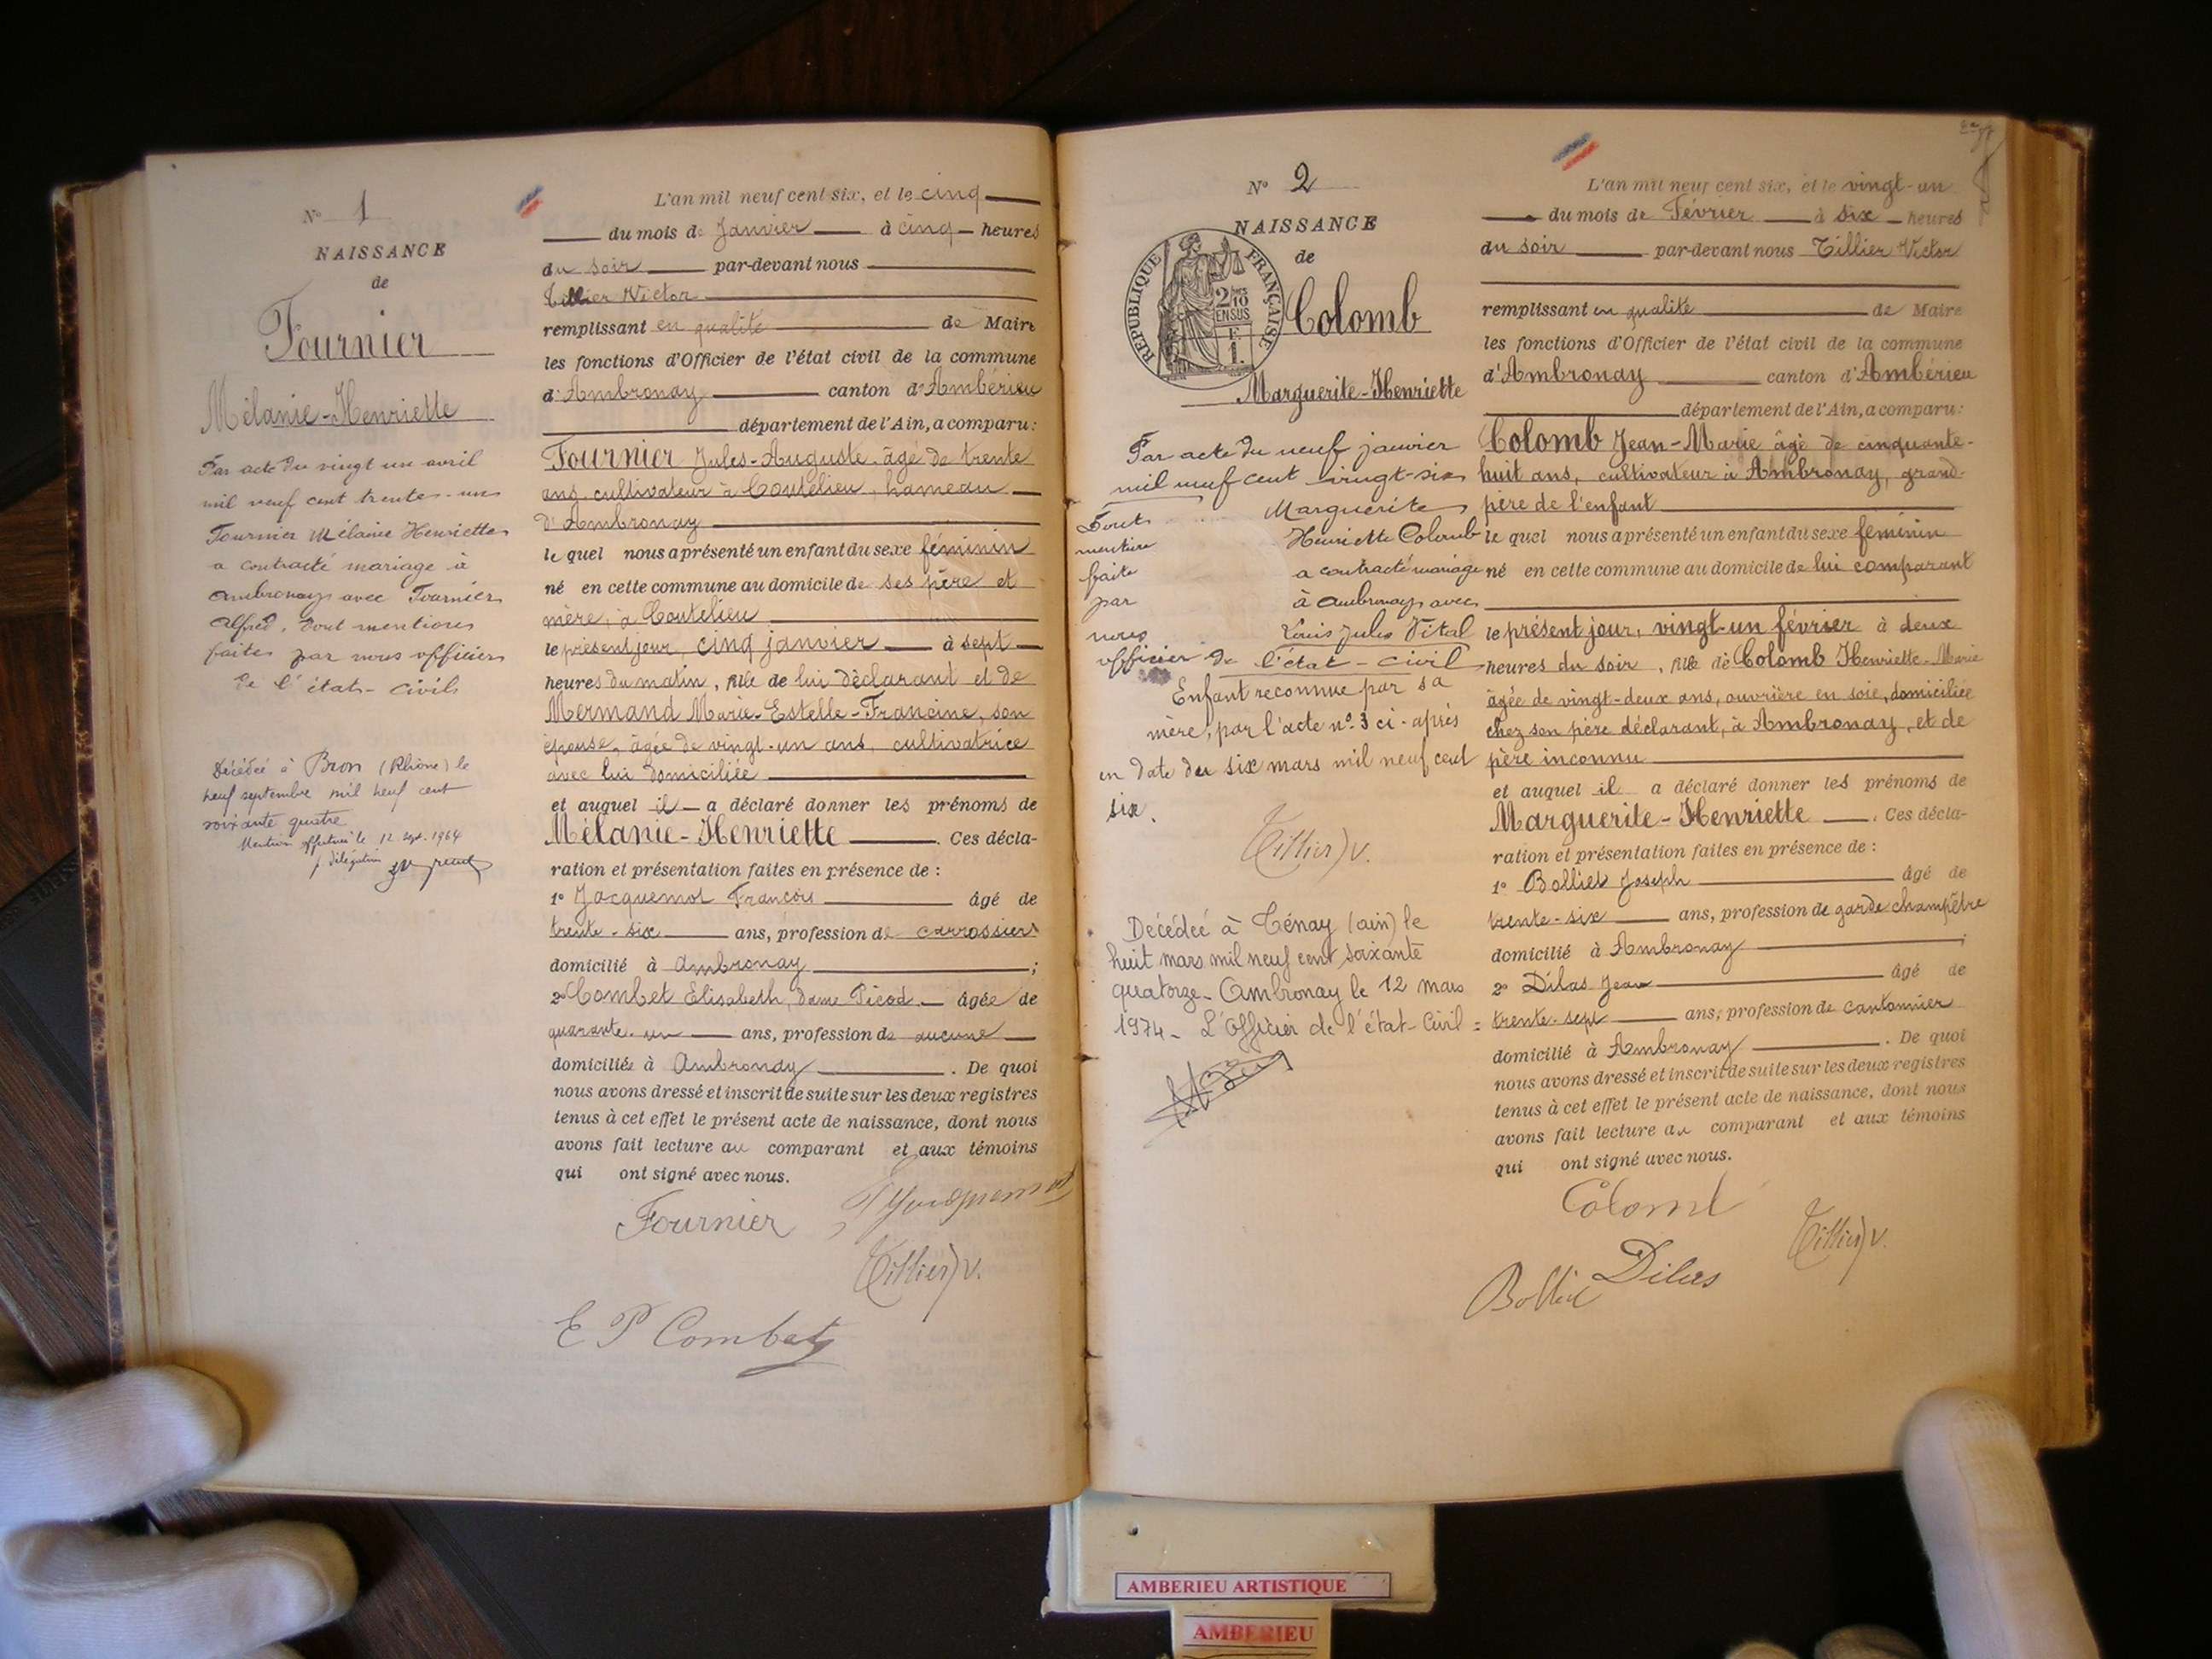 Nº 1
NAISSANCE
de
Fournier
Mélanie-Henriette
Par acte du vingt un avril
mil neuf cent trente-un
Fournier Mélanie Henriette
a contracté mariage à
Ambronay avec Fournier
Alfred, dont mention
faite par nous officier
de l'état-civil
Décédée à Bron (Rhône) le
neuf septembre mil neuf cent
soixante quatre
Mention effectuée le 12 sept. 1964
p délégation
L'an mil neuf cent six, et le cinq
du mois de Janvier à cinq heures
du soir par-devant nous
Tillier Victor
remplissant en qualité de Maire
les fonctions d'Officier de l'état civil de la commune
d'Ambronay canton d'Ambérieu
département de l'Ain, a comparu:
Fournier Jules-Auguste, âgé de trente
ans, cultivateur à Coutelieu, hameau
d'Ambronay
le quel nous a présenté un enfant du sexe féminin
né en cette commune au domicile de ses père et
mère, à Coutelieu
le présent jour, cinq janvier à sept
heures du matin, fille de lui déclarant et de
Mermand Marie-Estelle-Francine, son
épouse, âgée de vingt-un ans, cultivatrice
avec lui domiciliée
et auquel il a déclaré donner les prénoms de
Mélanie-Henriette . Ces décla-
ration et présentation faites en présence de :
1º Jacquemot François âgé de
trente-six ans, profession de carrossier
domicilié à Ambronay ;
2º Combet Élisabeth, dame Picod âgée de
quarante-un ans, profession de aucune
domiciliée à Ambronay . De quoi
nous avons dressé et inscrit de suite sur les deux registres
tenus à cet effet le présent acte de naissance, dont nous
avons fait lecture au comparant et aux témoins
qui ont signé avec nous.
Fournier
Jacquemot
Tillier V.
E P Combet
Nº 2
NAISSANCE
de
RÉPUBLIQUE FRANÇAISE
2/10
EN SUS
F.
1.
Colomb
Marguerite-Henriette
Par acte du neuf janvier
mil neuf cent vingt-six
Marguerite
Henriette Colomb
a contracté mariage
à Ambronay avec
Louis Jules Vital
Dont
mention
faite
par
nous
officier de l'état-civil
Enfant reconnue par sa
mère, par l'acte nº 3 ci-après
en date du six mars mil neuf cent
six.
Tillier V.
Décédée à Ténay (ain) le
huit mars mil neuf cent soixante
quatorze - Ambronay le 12 mars
1974 - L'Officier de l'état-Civil =
L'an mil neuf cent six, et le vingt-un
du mois de Février à six heures
du soir par-devant nous Tillier Victor
remplissant en qualité de Maire
les fonctions d'Officier de l'état civil de la commune
d'Ambronay canton d'Ambérieu
département de l'Ain, a comparu:
Colomb Jean-Marie âgé de cinquante-
huit ans, cultivateur à Ambronay, grand-
père de l'enfant
le quel nous a présenté un enfant du sexe féminin
né en cette commune au domicile de lui comparant
le présent jour, vingt-un février à deux
heures du soir, fille de Colomb Henriette-Marie
âgée de vingt-deux ans, ouvrière en soie, domiciliée
chez son père déclarant, à Ambronay, et de
père inconnu
et auquel il a déclaré donner les prénoms de
Marguerite-Henriette . Ces décla-
ration et présentation faites en présence de :
1º Bolliet Joseph âgé de
trente-six ans, profession de garde champêtre
domicilié à Ambronay ;
2º Dilas Jean âgé de
trente-sept ans, profession de cantonnier
domicilié à Ambronay . De quoi
nous avons dressé et inscrit de suite sur les deux registres
tenus à cet effet le présent acte de naissance, dont nous
avons fait lecture au comparant et aux témoins
qui ont signé avec nous.
Colomb
Tillier V.
Dilas
Bolliet
AMBERIEU ARTISTIQUE
AMBERIEU